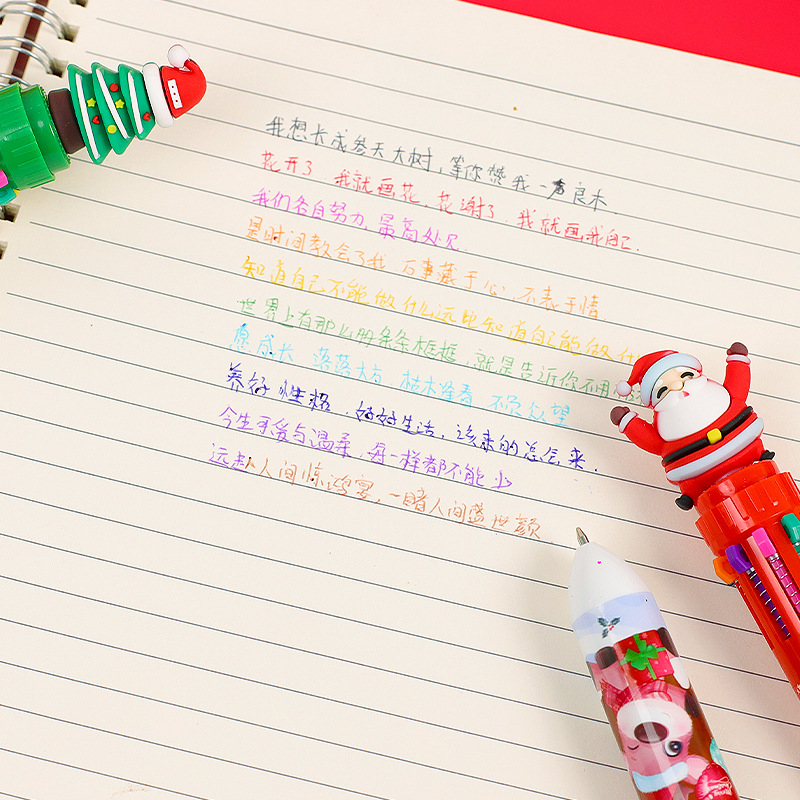 我想长成参天大树，等你赞我一声良木.
花开了 我就画花，花谢了，我就画我自己.
我们各自努力 最高处见
是时间教会了我 万事藏于心，不表于情
知道自己不能做什么远比知道自己能做什
世界上有那么那条条框框，就是告诉你不用
愿成长 落落大方 枯木逢春 不负众望
养好性格，好好生活，该来的总会来.
今生可爱与温柔，每一样都不能少
远赴人间惊鸿宴，一睹人间盛世颜